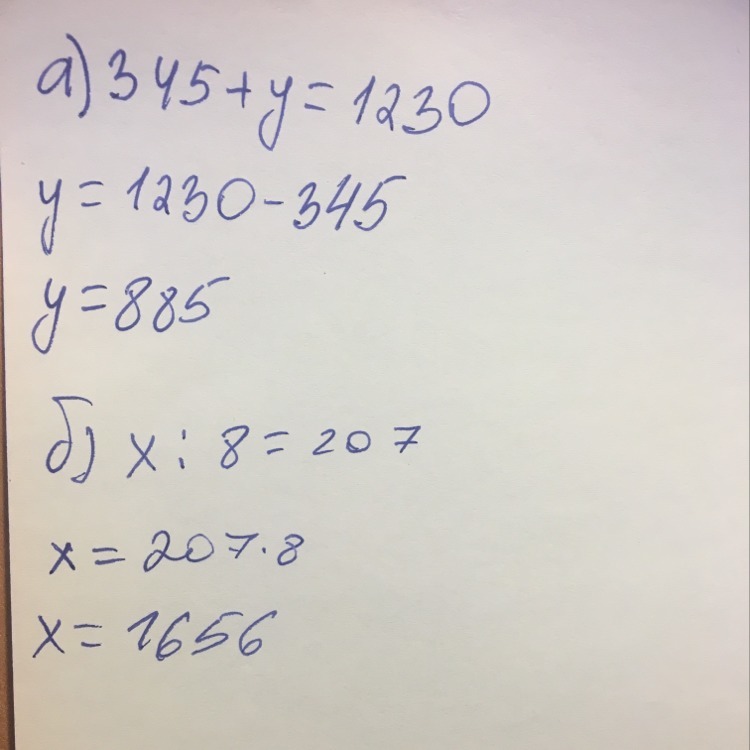 а) 345+y=1230
y=1230-345
y=885
б) x:8=207
x=207·8
x=1656